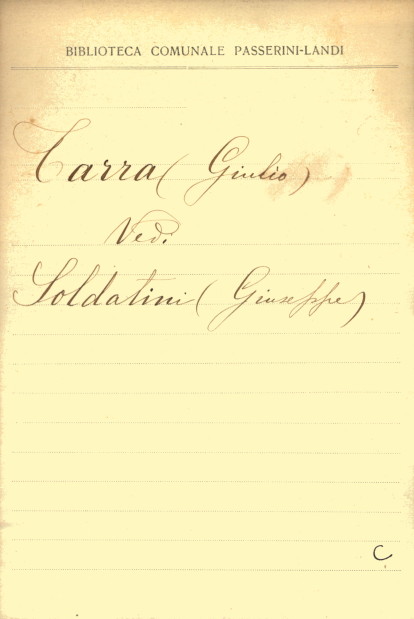 BIBLIOTECA COMUNALE PASSERINI-LANDI
Tarra (Giulio)
Ved.
Soldatini (Giuseppe)
C